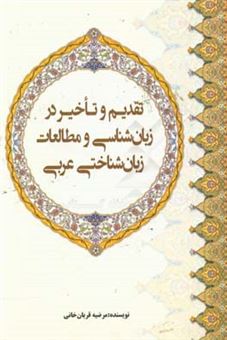 تقدیم و تأخیر در
زبان‌شناسی و مطالعات
زبان‌شناختی عربی
نویسنده: مرضیه قربان‌خانی